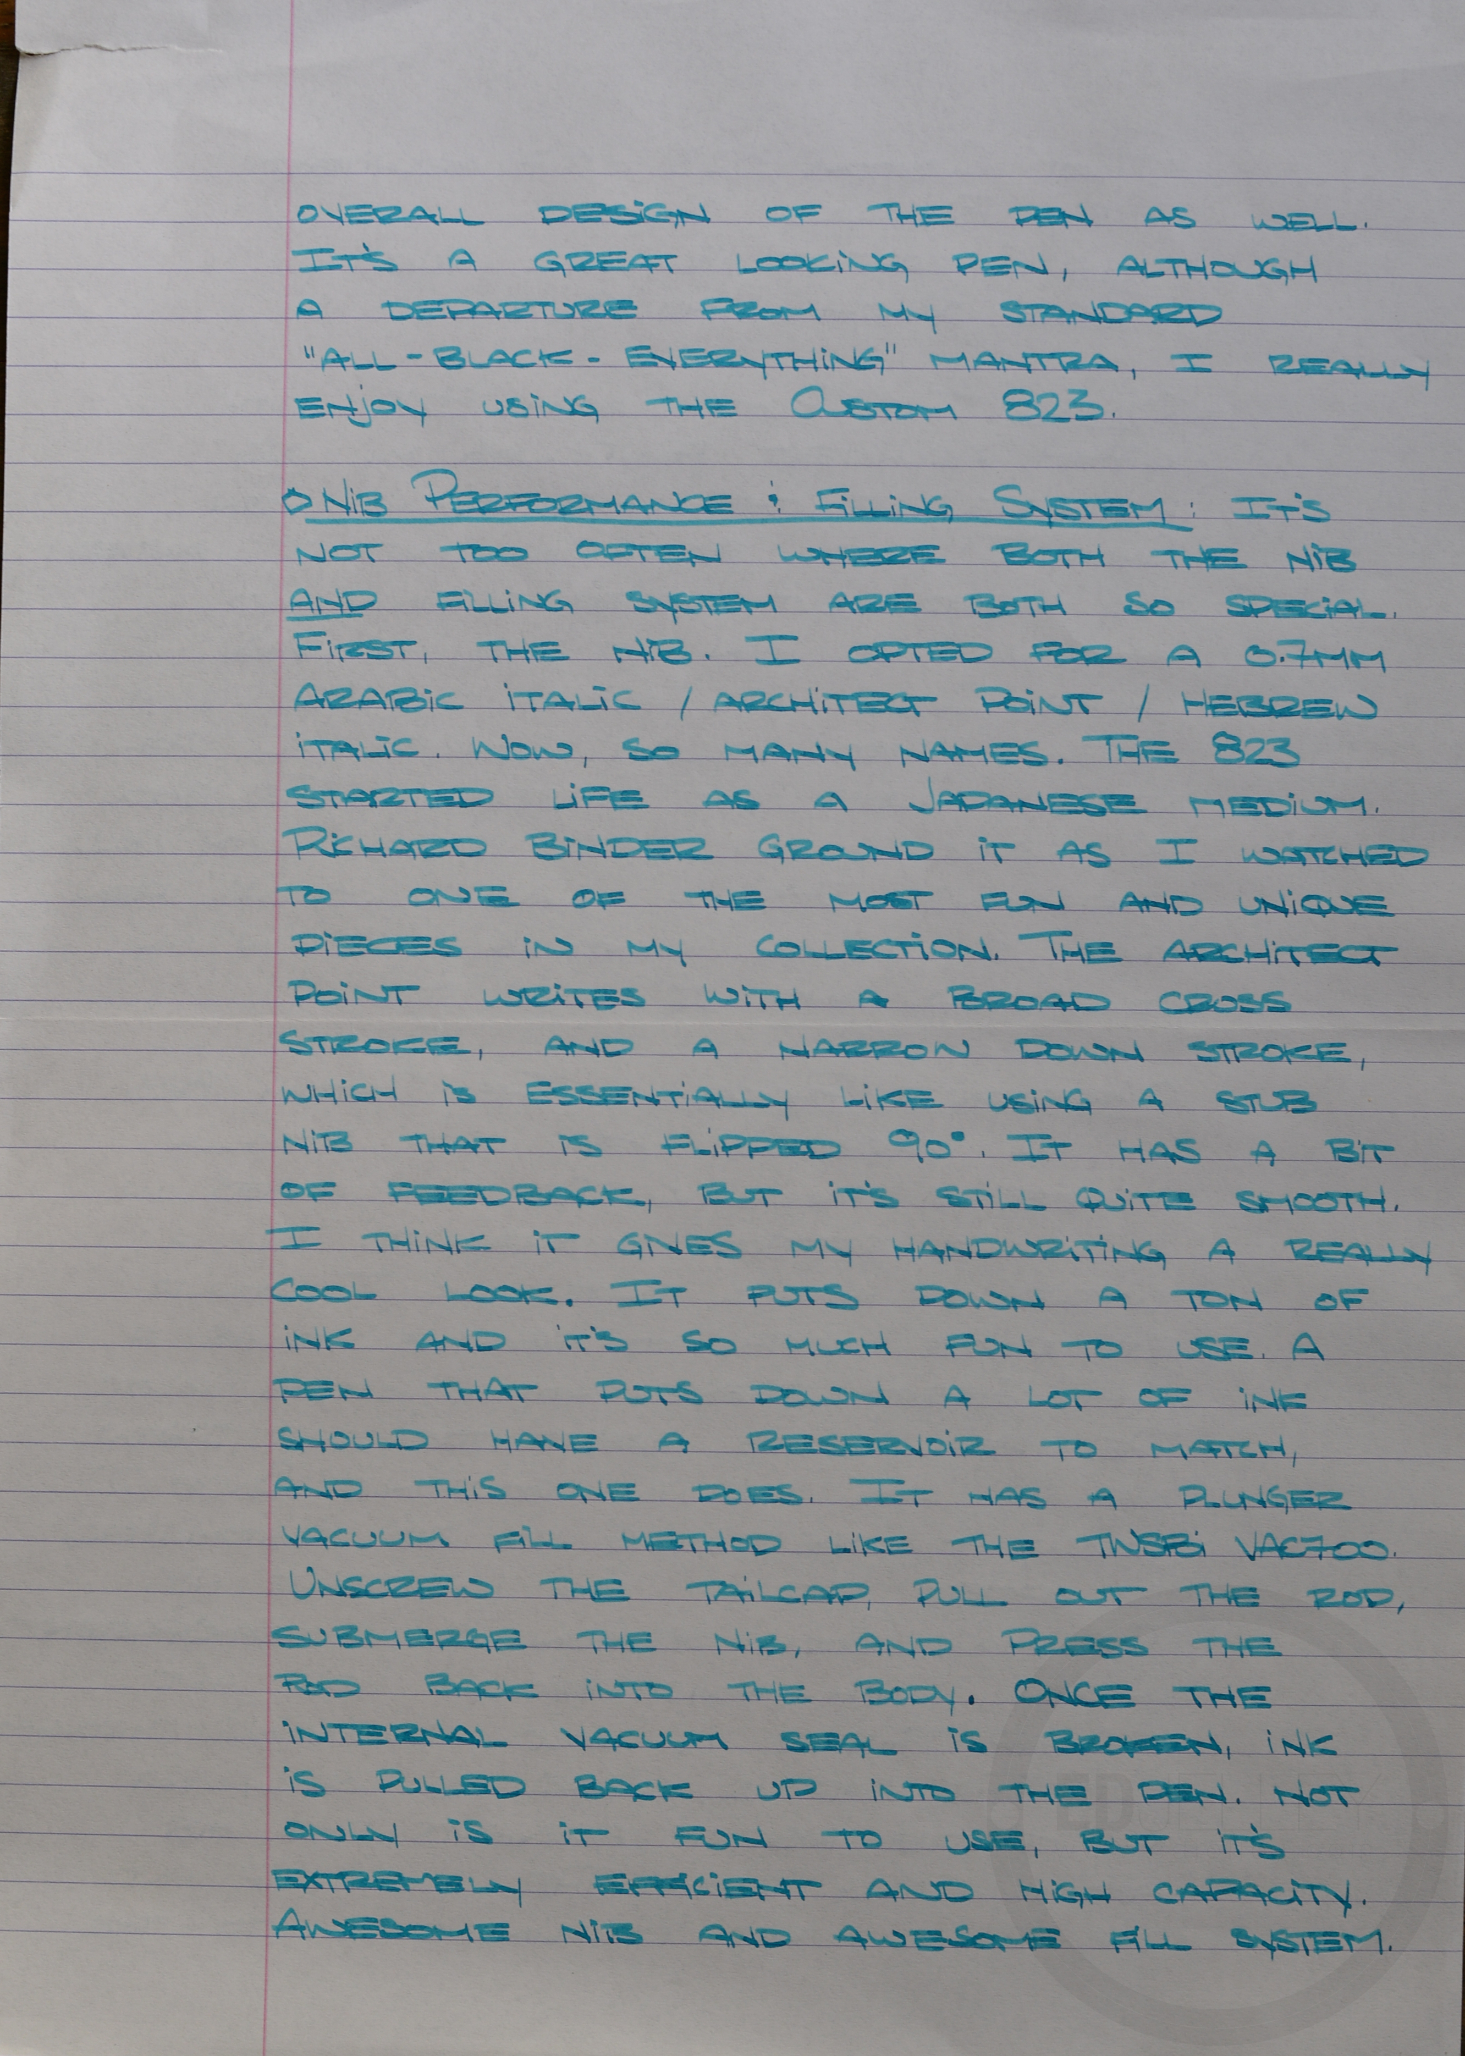 OVERALL DESIGN OF THE PEN AS WELL.
IT'S A GREAT LOOKING PEN, ALTHOUGH
A DEPARTURE FROM MY STANDARD
"ALL-BLACK-EVERYTHING" MANTRA, I REALLY
ENJOY USING THE CUSTOM 823.
NIB PERFORMANCE & FILLING SYSTEM: IT'S
NOT TOO OFTEN WHERE BOTH THE NIB
AND FILLING SYSTEM ARE BOTH SO SPECIAL.
FIRST, THE NIB. I OPTED FOR A 0.7MM
ARABIC ITALIC / ARCHITECT POINT / HEBREW
ITALIC. WOW, SO MANY NAMES. THE 823
STARTED LIFE AS A JAPANESE MEDIUM.
RICHARD BINDER GROUND IT AS I WATCHED
TO ONE OF THE MOST FUN AND UNIQUE
PIECES IN MY COLLECTION. THE ARCHITECT
POINT WRITES WITH A BROAD CROSS
STROKE, AND A NARROW DOWN STROKE,
WHICH IS ESSENTIALLY LIKE USING A STUB
NIB THAT IS FLIPPED 90°. IT HAS A BIT
OF FEEDBACK, BUT IT'S STILL QUITE SMOOTH.
I THINK IT GIVES MY HANDWRITING A REALLY
COOL LOOK. IT PUTS DOWN A TON OF
INK AND IT'S SO MUCH FUN TO USE. A
PEN THAT PUTS DOWN A LOT OF INK
SHOULD HAVE A RESERVOIR TO MATCH,
AND THIS ONE DOES. IT HAS A PLUNGER
VACUUM FILL METHOD LIKE THE TWSBI VAC700.
UNSCREW THE TAILCAP, PULL OUT THE ROD,
SUBMERGE THE NIB, AND PRESS THE
ROD BACK INTO THE BODY. ONCE THE
INTERNAL VACUUM SEAL IS BROKEN, INK
IS PULLED BACK UP INTO THE PEN. NOT
ONLY IS IT FUN TO USE, BUT IT'S
EXTREMELY EFFICIENT AND HIGH CAPACITY.
AWESOME NIB AND AWESOME FILL SYSTEM.